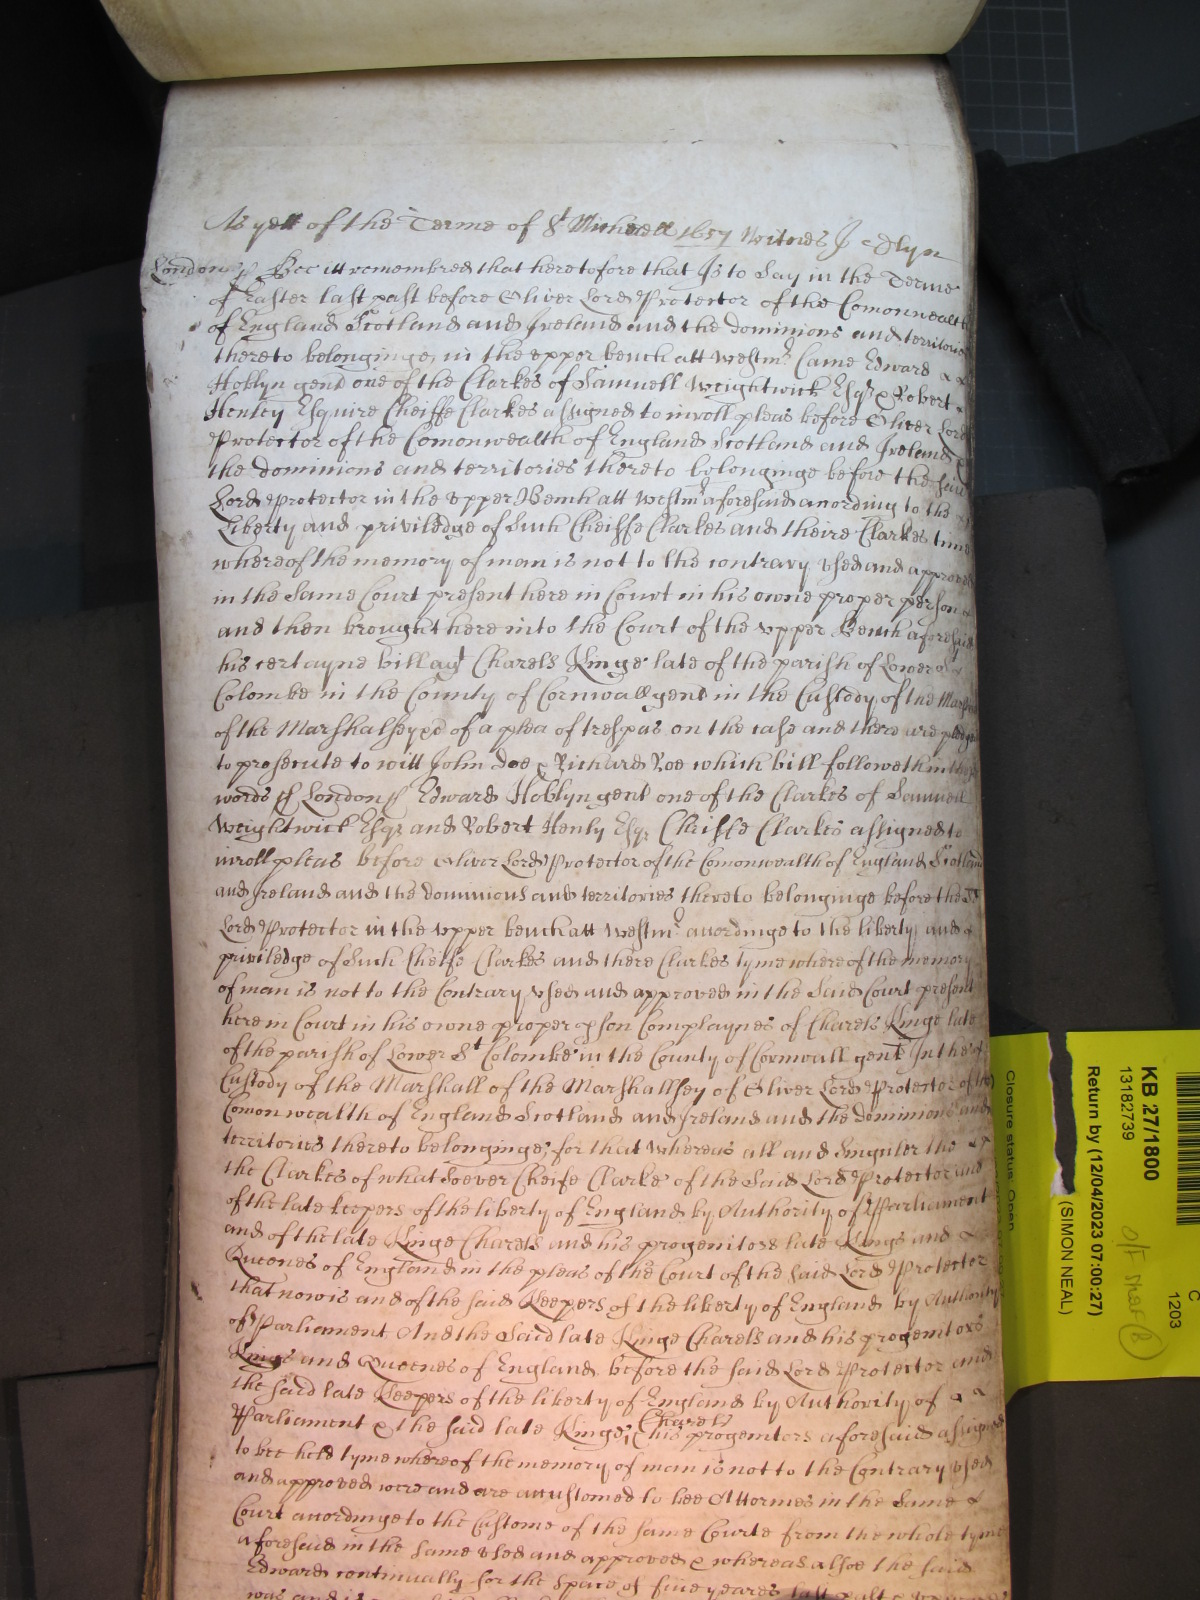 As yett of the Terme of St Michaell 1657 Witnes J Glyn
London ss Bee itt remembred that heretofore that Is to Say in the Terme
of Easter last past before Oliver Lord Protector of the Comonwealth
of England Scotland and Ireland and the dominions and territories
thereto belonginge, in the upper bench att Westmr Came Edward
Hoblyn gent one of the Clarkes of Samuell Weightwick Esqr & Robert
Henley Esquire Cheiffe Clarkes assigned to inroll pleas before Oliver Lord
Protector of the Comonwealth of England Scotland and Ireland &
the dominions and territories thereto belonginge before the said
Lord Protector in the Upper Bench att Westmr aforesaid acording to the
Liberty and priviledge of Such Cheiffe Clarkes and theire Clarkes time
whereof the memory of man is not to the contrary Used and approved
in the Same Court present here in Court in his owne proper person
and then brought here into the Court of the upper Bench aforesaid
his certayne bill agt Charels Kinge late of the parish of Lower
Colombe in the County of Cornwall gent in the Custody of the Marshall
of the Marshalsey &c of a plea of trespas on the case and there are pledges
to prosecute to witt John Doe & Richard Roe which bill followeth in these
words ss London ss Edward Hoblyn gent one of the Clarkes of Samuell
Weightwick Esqr and Robert Henly Esqr Cheiffe Clarkes assigned to
inroll pleas before Oliver Lord Protector of the Comonwealth of England Scotland
and Ireland and the dominions and territories thereto belonginge before the sd
Lord Protector in the Upper bench att Westmr acordinge to the liberty and
priviledge of Such Cheife Clarkes and there Clarkes tyme whereof the memory
of man is not to the Contrary Used and approved in the Said Court present
here in Court in his owne proper pson Complaynes of Charels Kinge late
of the parish of Lower St Colombe in the County of Cornwall gent In the
Custody of the Marshall of the Marshallsey of Oliver Lord Protector of the
Comonwealth of England Scotland and Ireland and the dominions and
territories thereto belonginge, for that Whereas all and Singuler the
the Clarkes of what Soever Cheife Clarke of the Said Lord Protector and
of the late keepers of the liberty of England by Authority of Parliament
and of the late Kinge Charels and his progenitors late Kings and
Queenes of England in the pleas of the Court of the Said Lord Protector
that now is and of the Said Keepers of the liberty of England by Authority
of Parliament And the Said late Kinge Charels and his progenitors
Kings and Queenes of England before the Said Lord Protector and
the said late Keepers of the liberty of England by Authority of
Parliament & the said late Kinge Charels his progenitors aforesaid assigned
to bee held tyme whereof the memory of man is not to the Contrary Used
and approved were and are accustomed to bee Attornies in the Same
Court acordinge to the Custome of the same Courte from the whole tyme
aforesaid in the Same Used and approved & whereas alsoe the said
Edward continually for the Space of five yeares last past
was and is
KB 27/1800
13182739
Return by (12/04/2023 07:00:27)
Closure status: Open
(SIMON NEAL)
C
1203